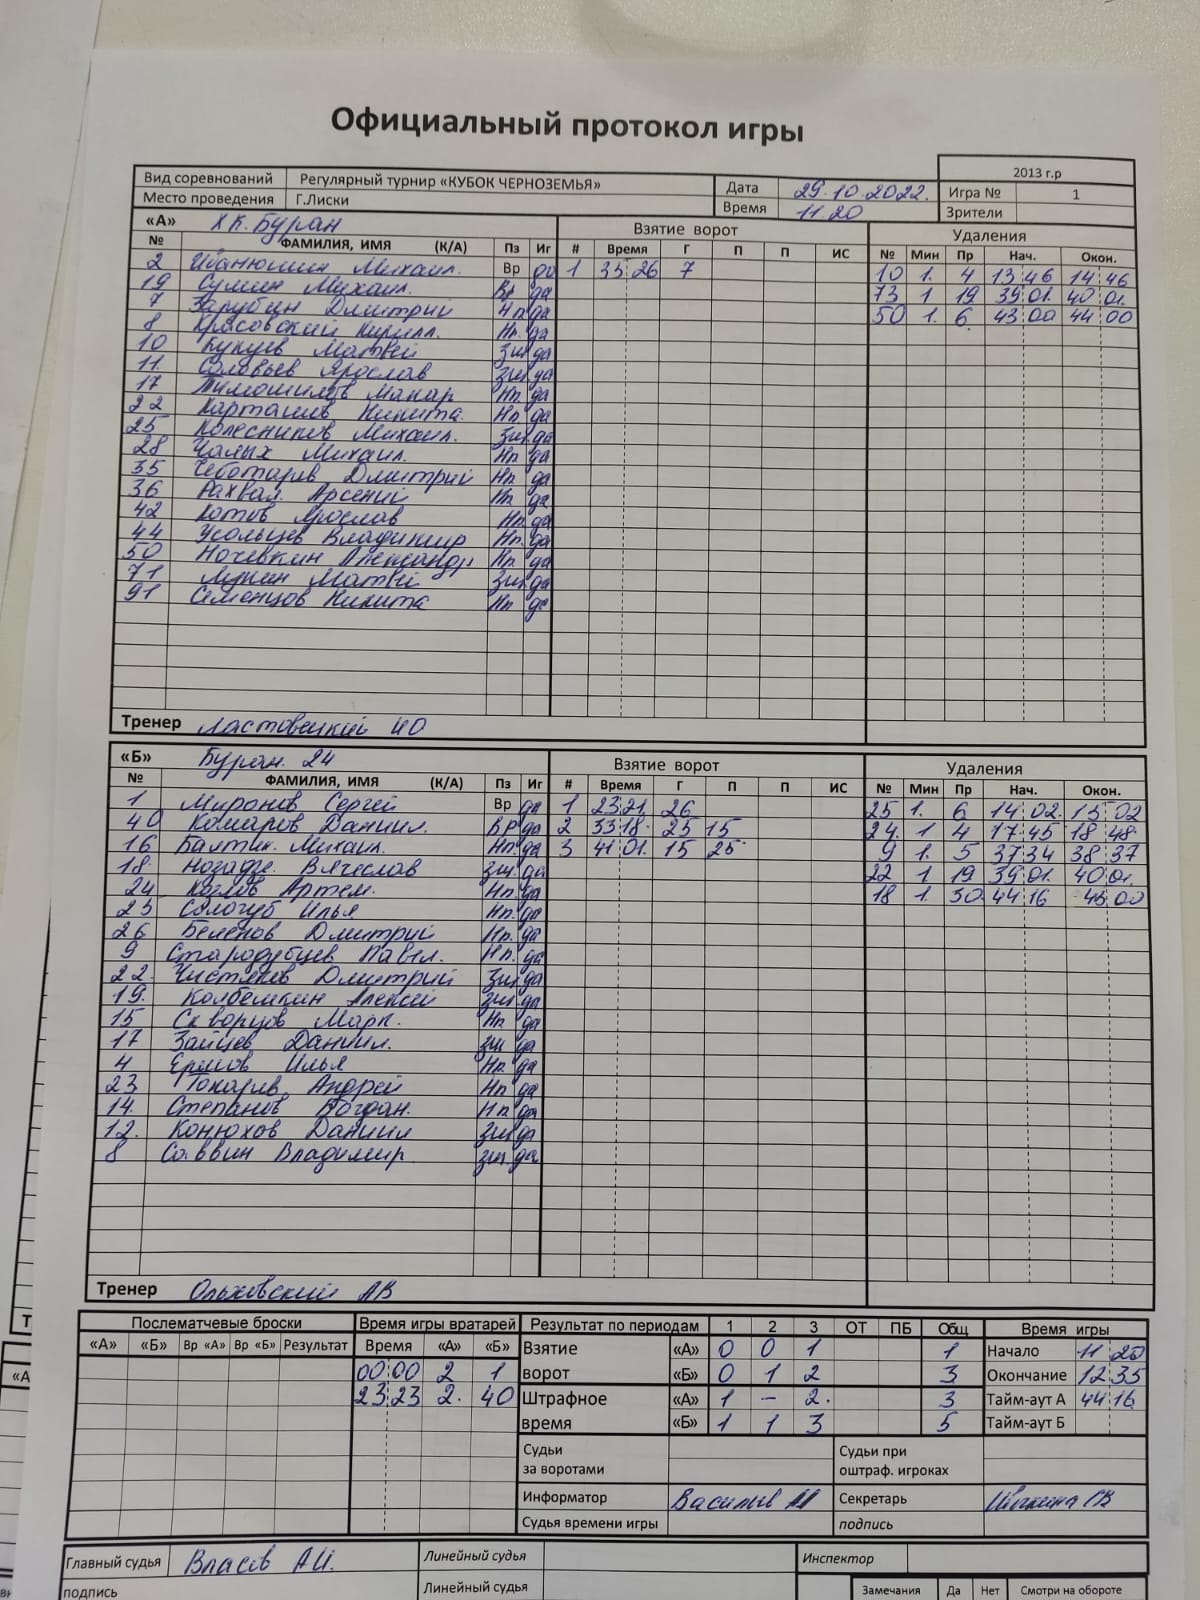 Официальный протокол игры
2013 г.р
Вид соревнований Регулярный турнир «КУБОК ЧЕРНОЗЕМЬЯ» Дата 29.10.2022. Игра № 1
Место проведения Г.Лиски Время 11.20 Зрители
«А» ХК. Буран Взятие ворот Удаления
№ ФАМИЛИЯ, ИМЯ (К/А) Пз Иг # Время Г П П ИС № Мин Пр Нач. Окон.
2 Иванюшин Михаил. Вр да 1 35 26 7 10 1. 4 13 46 14 46
19 Сумин Михаил. Вр да 73 1 19 39 01. 40 01.
7 Зарубин Дмитрий Нп. да 50 1. 6. 43 00 44 00
8 Красовский Кирилл. Нп. да
10 Кукуев Матвей Зщ да
11. Соловьев Ярослав Зщ да
17 Тимошилов Макар Нп. да
22 Карташов Никита Нп. да
25 Колесников Михаил. Зщ. да
28 Чалых Михаил. Нп да
35 Чеботарев Дмитрий Нп да
36 Рахвал. Арсений Нп. да
42 Котов Ярослав Нп. да
44 Усольцев Владимир Нп. да
50 Ночевкин Александр Нп. да
71 Лунин Матвей Зщ. да
91 Семенцов Никита Нп да
Тренер Ластовецкий Ю
«Б» Буран 24 Взятие ворот Удаления
№ ФАМИЛИЯ, ИМЯ (К/А) Пз Иг # Время Г П П ИС № Мин Пр Нач. Окон.
1 Миронов Сергей Вр да 1 23 21 26 25 1. 6 14 02. 15 02
40 Комаров Даниил. Вр да 2 33 18. 25 15 24. 1 4 17 45 18 48.
16 Балтин. Михаил. Нп. да 3 41 01. 15 25 9 1. 5 37 34 38 37
18. Нозадзе. Вячеслав Зщ. да 22 1 19 39 01. 40 01.
24 Козлов Артем. Нп. да 18 1. 30. 44 16 45 00
25 Сологуб Илья Нп. да
26 Беленов Дмитрий Нп. да
9 Стародубцев Павел. Нп. да
22. Чистяков Дмитрий Зщ. да
19. Колбёшкин Алексей Зщ. да
15 Скворцов Марк. Нп да
17 Зайцев Даниил. Зщ да
4 Ершов Илья Нп. да
23 Токарев Андрей Нп да
14. Степанов Богдан. Нп да
12. Конюхов Даниил Зщ да
8 Саввин Владимир Зщ. да
Тренер Ольховский АВ
Послематчевые броски Время игры вратарей Результат по периодам 1 2 3 ОТ ПБ Общ Время игры
«А» «Б» Вр «А» Вр «Б» Результат Время «А» «Б» Взятие «А» 0 0 1 1 Начало 11 20
00 00 2 1 ворот «Б» 0 1 2 3 Окончание 12 35
23 23 2. 40 Штрафное «А» 1 – 2. 3 Тайм-аут А 44 16
время «Б» 1 1 3 5 Тайм-аут Б
Судьи Судьи при
за воротами оштраф. игроках
Информатор Васильев Секретарь
Судья времени игры подпись
Главный судья Власов АИ. Линейный судья Инспектор
подпись Линейный судья Замечания Да Нет Смотри на обороте